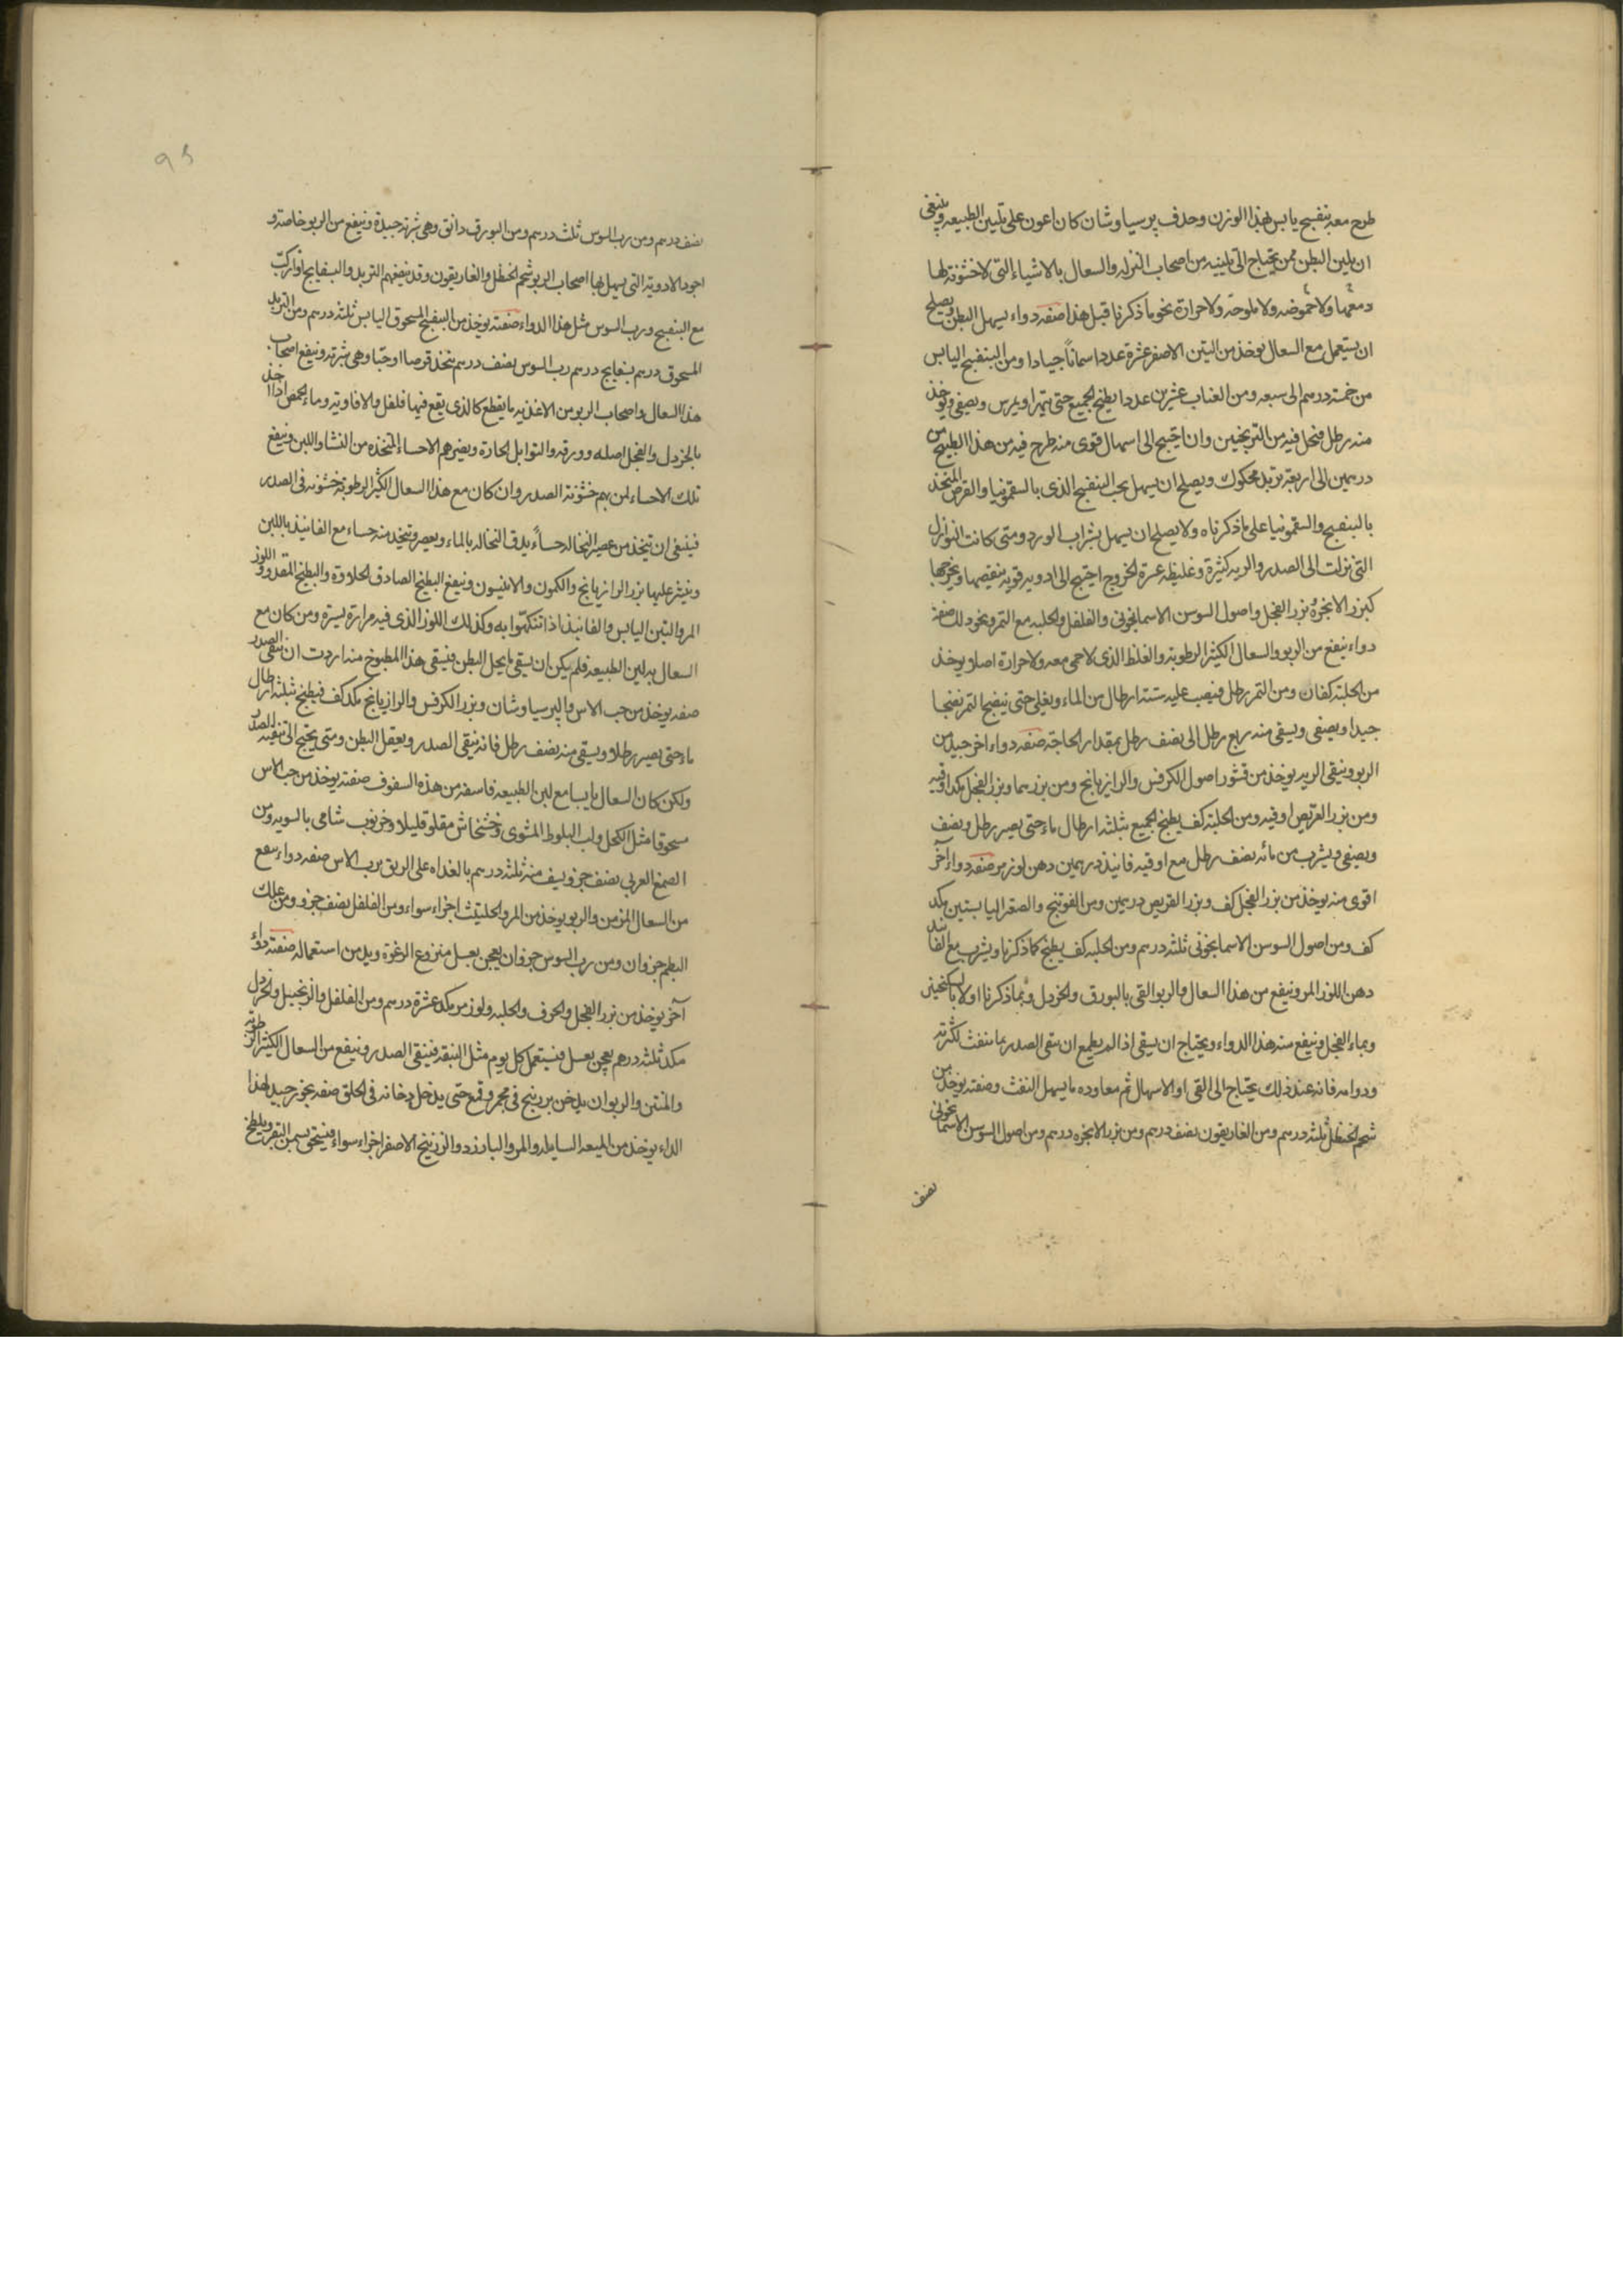 طرح معه بنفسج يابس لهذا الوزن وحذف پرسياوشان كان اعون على تليين الطبيعه وينبغى
ان يلين البطن ممن يحتاج الى تليينه من اصحاب النزله والسعال بالاشياء التى لا خشونة لها
ولا حموضه ولا ملوحة ولا حرارة نحو ما ذكرنا قبل هذا صفه دواء يسهل البطن ويصلح
ان يستعمل مع السعال يوخذ من التين الاصفر عشرة عددا سماناً جيادا ومن البنفسج اليابس
من خمسة درهم الى سبعه ومن العناب عشرين عددا يطبخ الجميع حتى يتهرا ويمرس ويصفى ويوخذ
منه رطل فيحل فيه من الترنجبين وان احتيج الى اسهال قوى منه طرح فيه من هذا الطبيخ من
درهمين الى اربعة تربد محكوك ويصلح ان يسهل بحب البنفسج الذى بالسقمونيا والقرص المتخذ
بالبنفسج والسقمونيا على ما ذكرناه ولا يصلح ان يسهل بشراب الورد ومتى كانت النوازل
التى نزلت الى الصدر والريه كثيرة وغليظه عسرة الخروج احتيج الى ادويه قويه ينقيصها ويخرجها
كبزر الانجرة وبزر الفجل واصول السوسن الاسمانجونى والفلفل والحلبه مع التمر ونحو ذلك صفة
دواء ينفع من الربو والسعال الكثير الرطوبة والغلظ الذى لا حمى معه ولا حرارة اصلا يوخذ
من الحلبة كفان ومن التمر رطل فيصب عليه ستة ارطال من الماء ويغلى حتى ينضج التمر نضجا
جيدا ويصفى ويسقى منه ربع رطل الى نصف رطل بمقدار الحاجة صفه دواء اخر جيد من
الربو وينقى الريه يوخذ من قشور اصول الكرفس والرازيانج ومن بزرهما وبزر الفجل مكد اوقيه
ومن بزر القريص اوقيه ومن الحلبة كف يطبخ الجميع بثلثه ارطال ماء حتى يصير رطل ونصف
ويصفى ويشرب من مائه نصف رطل مع اوقيه فانيذ درهمين دهن لوز مر صفه دواء آخر
اقوى منه يوخذ من بزر الفجل كف وبزر القريص درهمين ومن الفوتنج والصعتر اليابستين مكد
كف ومن اصول السوسن الاسمانجونى ثلثه درهم ومن الحلبه كف يطبخ كما ذكرنا ويشرب مع الفانيذ
دهن اللوز المر وينفع من هذا السعال والربو القى بالبورق والخردل وبما ذكرنا اولا بالسكنجبين
وبماء الفجل وينفع منه هذا الدواء ويحتاج ان يسقى اذا لم يطمع ان ينقى الصدر بما ينفث لكثرته
ودوامه فانه عند ذلك يحتاج الى القى او الاسهال ثم معاوده ما يسهل النفث وصفته يوخذ من
شحم الحنظل ثلثه درهم ومن الغاريقون نصف درهم ومن بزر الانجره درهم ومن اصول السوسن الاسمانجونى
نصف
نصف درهم ومن رب السوس ثلث درهم ومن البورق دانق وهى شربة جيدة وينفع من الربو خاصة و
اجود الادوية التى يسهل بها اصحاب الربو شحم الحنظل والغاريقون وقد ينفعهم التربد والبسفايج اذا ركب
مع البنفسج ورب السوس مثل هذا الدواء صفته يوخذ من البنفسج المسحوق اليابس ثلثه درهم ومن التربد
المسحوق درهم بسفايج درهم رب السوس نصف درهم يتخذ قرصا او حبا وهى شربته وينفع اصحاب
هذا السعال واصحاب الربو من الاغذيه ما يقطع كالذى يقع فيها فلفل والافاويه وماء الحمص اذا اخذ
بالخردل والفجل اصله وورقه والتوابل الحارة ويضرهم الاحساء المتخذه من النشا واللبن وينفع
تلك الاحساء لمن بهم خشونة الصدر وان كان مع هذا السعال الكثير الرطوبة خشونه فى الصدر
فينبغى ان يتخذ من عصير النخاله حساءً يدق النخاله بالماء ويعصر ويتخذ منه حساء مع الفانيذ باللبن
وينثر عليها بزر الرازيانج والكمون والانيسون وينفع البطيخ الصادق الحلاوة والبطيخ المقدد واللوز
المر والتين اليابس والفانيذ اذا تنكهوا به وكذلك اللوز الذى فيه مرارة يسيرة ومن كان مع
السعال به لين الطبيعه فلم يمكن ان يسقى ما يحل البطن فيسقى هذا المطبوخ منه اردت ان ينقى الصدر
صفه يوخذ من حب الاس والپرسياوشان وبزر الكرفس والرازيانج مكد كف فيطبخ بثلثه ارطال
ماء حتى يصير رطلا ويسقى منه نصف رطل فانه ينقى الصدر ويعقل البطن ومتى يحتج الى تنقيه الصدر
ولكن كان السعال يابسا مع لين الطبيعه فاسفه من هذه السفوف صفته يوخذ من حب الاس
مسحوقا مثل الكحل ولب البلوط المشوى وخشخاش مقلو قليلا وخرنوب شامى بالسويه ومن
الصمغ العربى نصف جزو يسف منه ثلثه درهم بالغداه على الريق برب الاس صفه دواء ينفع
من السعال المزمن والربو يوخذ من المر والحلتيت اجزاء سواء ومن الفلفل نصف جزو ومن علك
البطم جزوان ومن رب السوس جزوان يعجن بعسل منزوع الرغوة ويدمن استعماله صفته دواء
آخر يوخذ من بزر الفجل والحرف والحلبه ولوز مر مكد عشرة درهم ومن الفلفل والزنجبيل والخردل
مكد ثلثه درهم يعجن بعسل فيستعمل كل يوم مثل البندقه فينقى الصدر وينفع من السعال الكثير الرطوبه
والمنتن والربو ان يدخن بزرنيخ فى مجمر وقمع حتى يدخل دخانه فى الحلق صفه بخور جيد لهذا
الداء يوخذ من الميعه السايله والمر والبارزد والزرنيخ الاصفر اجزاء سواء فيسحق بسمن البقر ويلطخ